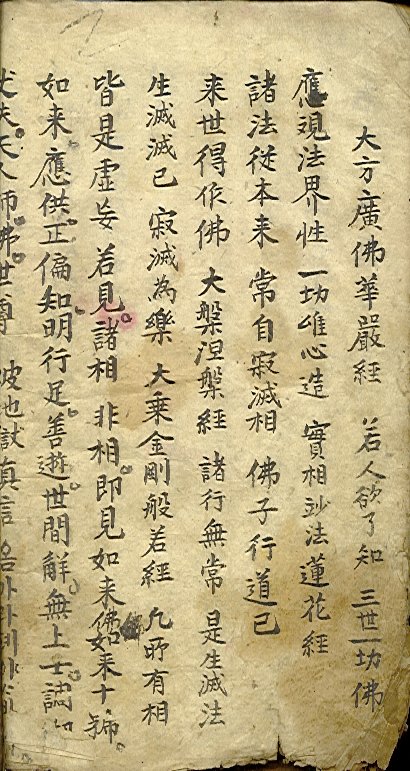 大方廣佛華嚴經 若人欲了知 三世一切佛
應觀法界性 一切唯心造 實相妙法蓮花經
諸法從本来 常自寂滅相 佛子行道已
来世得作佛 大槃涅槃經 諸行無常 是生滅法
生滅滅已 寂滅為樂 大乘金剛般若經 凢所有相
皆是虛妄 若見諸相 非相即見如来 如来十號
如来應供正徧知明行足善逝世間解無上士調
丈夫天人師佛世尊